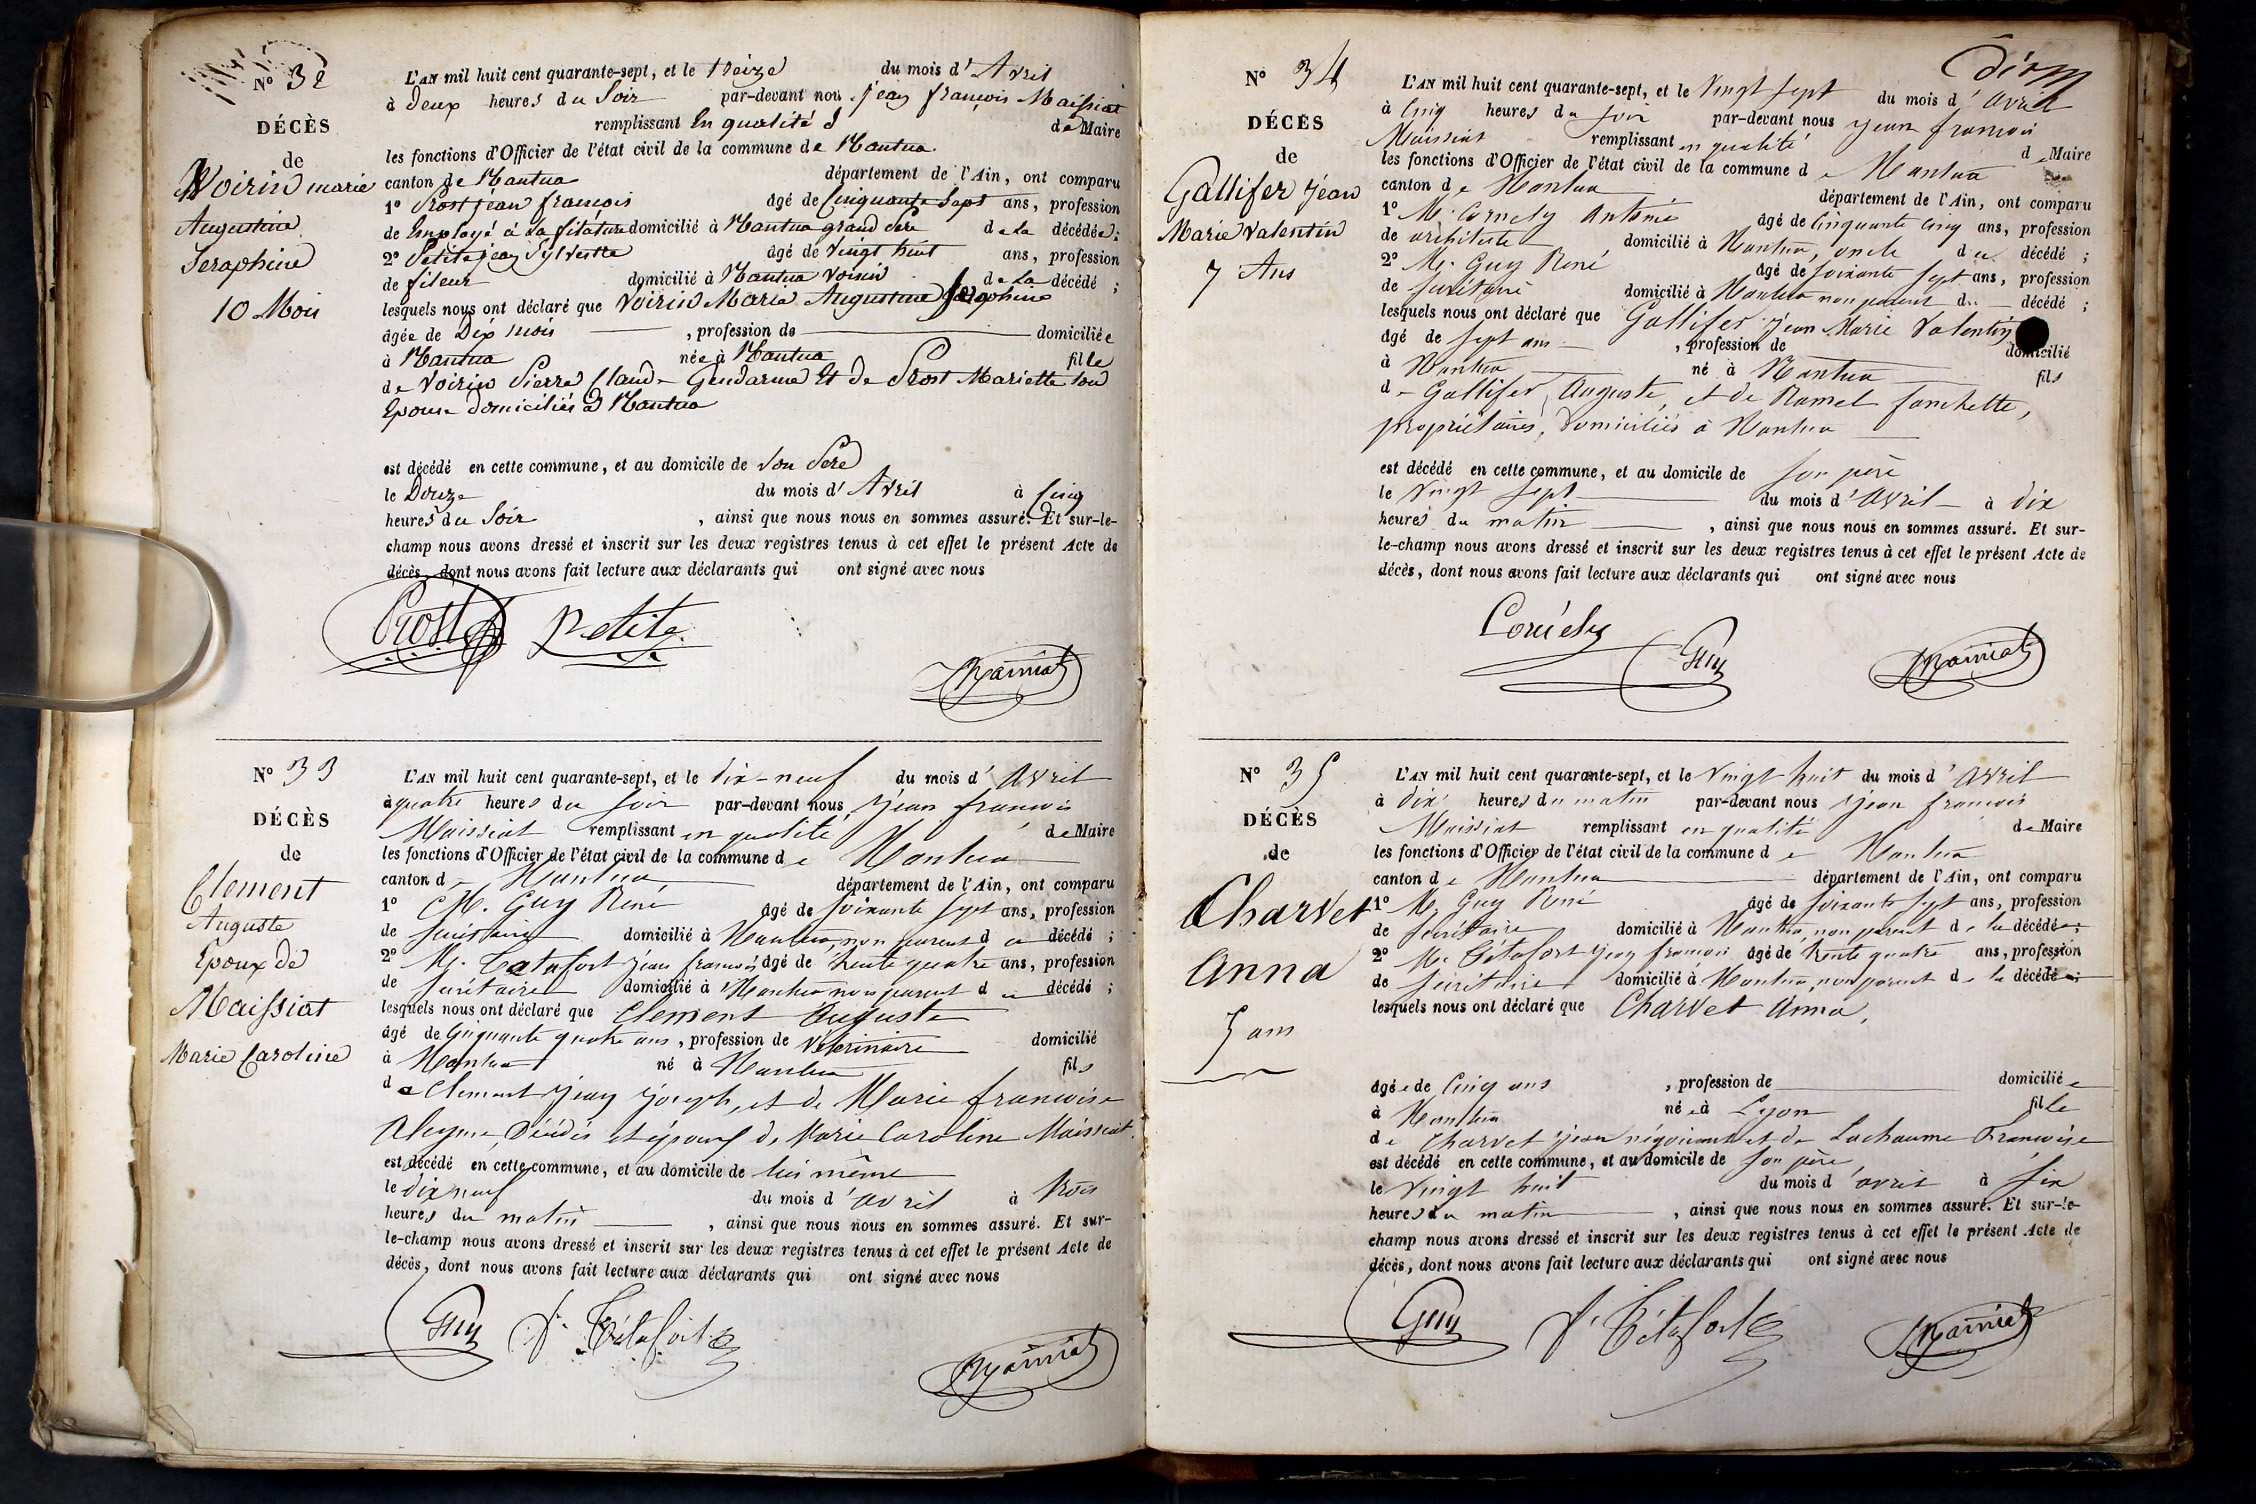 N° 32
DÉCÈS
de
Voirin marie
Augustine
Seraphine
10 Mois
L'AN mil huit cent quarante-sept, et le treize du mois d'Avril
à deux heures du Soir par-devant nous jean françois Maissiat
remplissant En qualité de Maire
les fonctions d'Officier de l'état civil de la commune de Nantua
canton de Nantua département de l'Ain, ont comparu
1° Prost jean françois âgé de Cinquante Sept ans, profession
de Employé à la filature domicilié à Nantua grand Père de La décédée;
2° Petite jean Sylvestre âgé de Vingt huit ans, profession
de fileur domicilié à Nantua Voisin de La décédé ;
lesquels nous ont déclaré que Voirin Maria Augustine Séraphine
âgée de Dix mois , profession de domiciliée
à Nantua née à Nantua fille
de Voirin Pierre Claude Gendarme Et de Prost Mariette Son
Epouse domiciliés à Nantua
est décédé en cette commune, et au domicile de Son Père
le Douze du mois d'Avril à Cinq
heures du Soir , ainsi que nous nous en sommes assuré. Et sur-le-
champ nous avons dressé et inscrit sur les deux registres tenus à cet effet le présent Acte de
décès, dont nous avons fait lecture aux déclarants qui ont signé avec nous
Prost Petite Maissiat
N° 33
DÉCÈS
de
Clement
Auguste
Epoux de
Maissiat
Marie Caroline
L'AN mil huit cent quarante-sept, et le dix-neuf du mois d'Avril
à quatre heures du soir par-devant nous jean françois
Maissiat remplissant en qualité de Maire
les fonctions d'Officier de l'état civil de la commune de Nantua
canton de Nantua département de l'Ain, ont comparu
1° M. Guy René âgé de soixante sept ans, profession
de secrétaire domicilié à Nantua, non parent du décédé ;
2° M. Tétafort jean françois âgé de trente quatre ans, profession
de secrétaire domicilié à Nantua non parent du décédé ;
lesquels nous ont déclaré que Clement Auguste
âgé de Cinquante quatre ans, profession de Vétérinaire domicilié
à Nantua né à Nantua fils
de Clement jean joseph, et de Marie françoise
Aleyme, Décédés et époux de Marie Caroline Maissiat.
est décédé en cette commune, et au domicile de lui même
le dix neuf du mois d'avril à trois
heures du matin , ainsi que nous nous en sommes assuré. Et sur-
le-champ nous avons dressé et inscrit sur les deux registres tenus à cet effet le présent Acte de
décès, dont nous avons fait lecture aux déclarants qui ont signé avec nous
Guy Tétafort Maissiat
N° 34
DÉCÈS
de
Gallifer Jean
Marie Valentin
7 Ans
L'AN mil huit cent quarante-sept, et le Vingt sept du mois d'avril
à Cinq heures du soir par-devant nous jean françois
Maissiat remplissant en qualité de Maire
les fonctions d'Officier de l'état civil de la commune de Nantua
canton de Nantua département de l'Ain, ont comparu
1° M. Cornely Antoine âgé de Cinquante cinq ans, profession
de architecte domicilié à Nantua, oncle du décédé ;
2° M. Guy René âgé de soixante sept ans, profession
de secrétaire domicilié à Nantua non parent du décédé ;
lesquels nous ont déclaré que Gallifer jean Marie Valentin
âgé de sept ans , profession de domicilié
à Nantua né à Nantua fils
de Gallifer, Auguste, et de Ramel fanchette,
propriétaires, domiciliés à Nantua
est décédé en cette commune, et au domicile de son père
le vingt sept du mois d'Avril à dix
heures du matin , ainsi que nous nous en sommes assuré. Et sur-
le-champ nous avons dressé et inscrit sur les deux registres tenus à cet effet le présent Acte de
décès, dont nous avons fait lecture aux déclarants qui ont signé avec nous
Cornély Guy Maissiat
N° 35
DÉCÈS
de
Charvet
Anna
5 ans
L'AN mil huit cent quarante-sept, et le Vingt huit du mois d'Avril
à dix heures du matin par-devant nous jean françois
Maissiat remplissant en qualité de Maire
les fonctions d'Officier de l'état civil de la commune de Nantua
canton de Nantua département de l'Ain, ont comparu
1° M. Guy René âgé de soixante sept ans, profession
de secrétaire domicilié à Nantua, non parent de la décédée;
2° M. Tétafort jean françois âgé de trente quatre ans, profession
de secrétaire domicilié à Nantua, non parent de la décédée;
lesquels nous ont déclaré que Charvet Anna,
âgée de Cinq ans , profession de domiciliée
à Nantua née à Lyon fille
de Charvet jean négociant et de Lachaume Françoise
est décédé en cette commune, et au domicile de son père
le Vingt huit du mois d'avril à six
heures du matin , ainsi que nous nous en sommes assuré. Et sur-le-
champ nous avons dressé et inscrit sur les deux registres tenus à cet effet le présent Acte de
décès, dont nous avons fait lecture aux déclarants qui ont signé avec nous
Guy Tétafort Maissiat